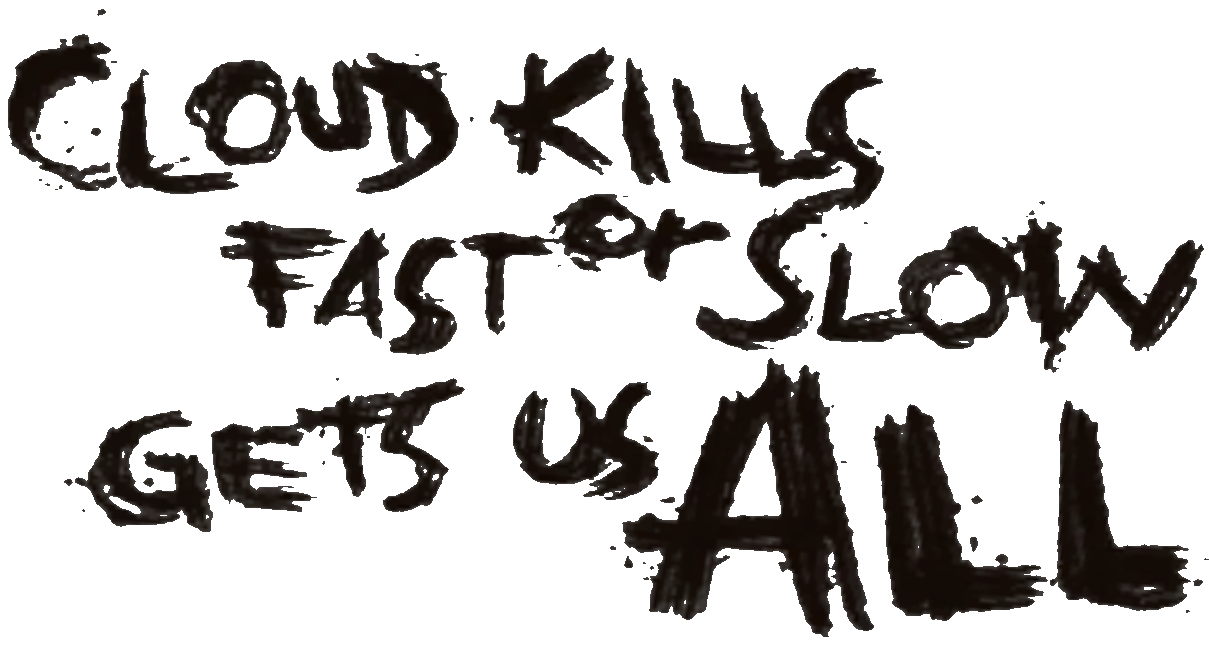 CLOUD KILLS
FAST or SLOW
GETS US ALL